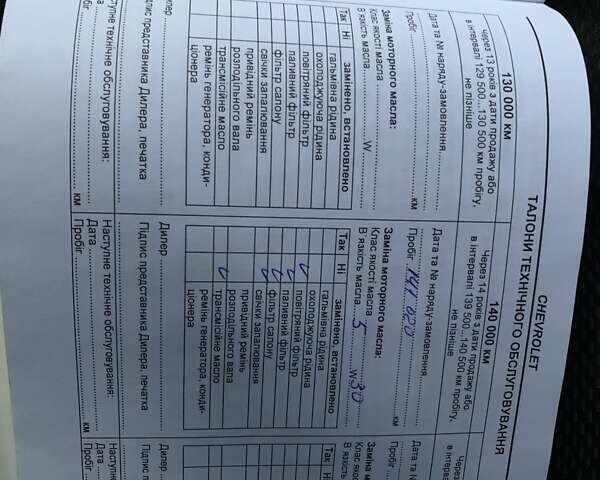 CHEVROLET
ТАЛОНИ ТЕХНІЧНОГО ОБСЛУГОВУВАННЯ
130 000 км
Через 13 років з дати продажу або
в інтервалі 129 500...130 500 км пробігу,
не пізніше
Дата та № наряду-замовлення
Пробіг км
Заміна моторного масла:
Клас якості масла
В`язкість масла W
Так Ні замінено, встановлено
гальмівна рідина
охолоджуюча рідина
повітряний фільтр
паливний фільтр
фільтр салону
свічки запалювання
привідний ремінь
розподільного вала
трансмісійне масло
ремінь генератора, конди-
ціонера
Дилер
Підпис представника Дилера, печатка
Наступне технічне обслуговування:
Дата
км
140 000 км
Через 14 років з дати продажу або
в інтервалі 139 500...140 500 км пробігу,
не пізніше
Дата та № наряду-замовлення
Пробіг 141 020 км
Заміна моторного масла:
Клас якості масла
В`язкість масла 5 W 30
Так Ні замінено, встановлено
гальмівна рідина
охолоджуюча рідина
повітряний фільтр
паливний фільтр
фільтр салону
свічки запалювання
привідний ремінь
розподільного вала
трансмісійне масло
ремінь генератора, конди-
ціонера
Дилер
Підпис представника Дилера, печатка
Наступне технічне обслуговування:
Дата
Пробіг км
Через
в інтервал
Дата та №
Пробіг
Заміна мо
Клас якост
В`язкість
Так Ні
Дилер
Підпис п
Наступне
Дата
Пробіг